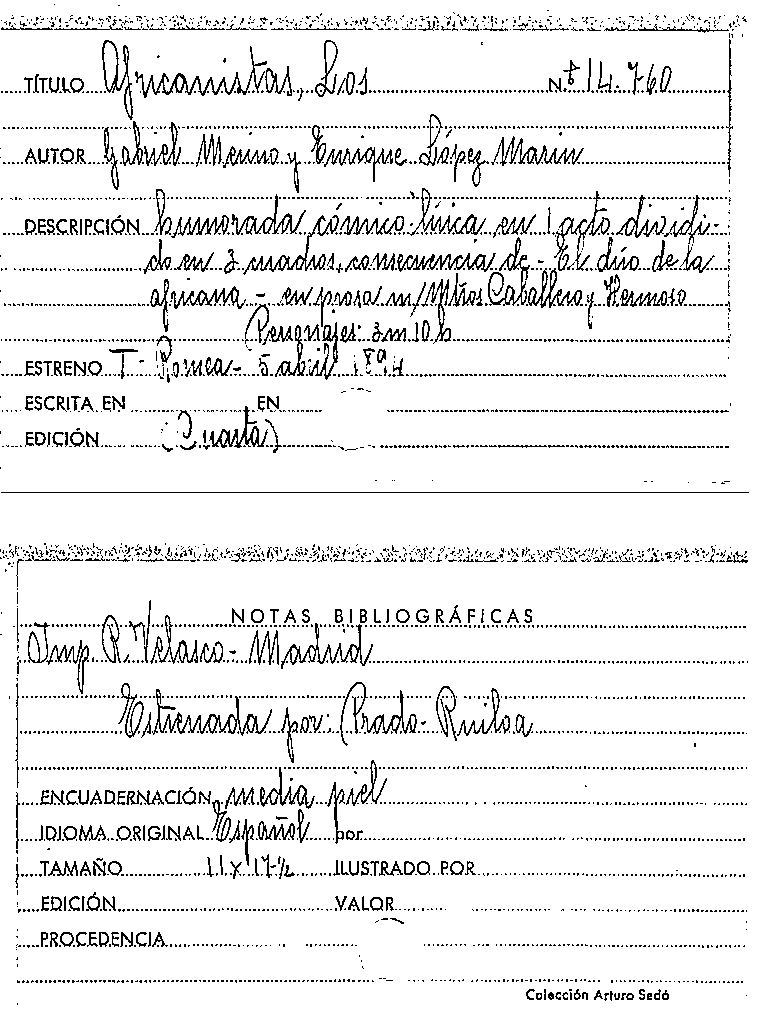 TÍTULO Africanistas, Los N.º 14.760
AUTOR Gabriel Merino y Enrique López Marin
DESCRIPCIÓN humorada cómico-lírica en 1 acto dividi-
do en 3 cuadros, consecuencia de - El dúo de la
africana - en prosa m/ Mtros Caballero y Hermoso
Personajes: 3 m 10 h
ESTRENO T- Romea - 5 abril 1894
ESCRITA EN EN
EDICIÓN (Cuarta)
NOTAS BIBLIOGRÁFICAS
Imp. R. Velasco - Madrid
Estrenada por: Prado- Ruiloa
ENCUADERNACIÓN media piel
IDIOMA ORIGINAL Español por
TAMAÑO 11 x 17-½ ILUSTRADO POR
EDICIÓN VALOR
PROCEDENCIA
Colección Arturo Sedó